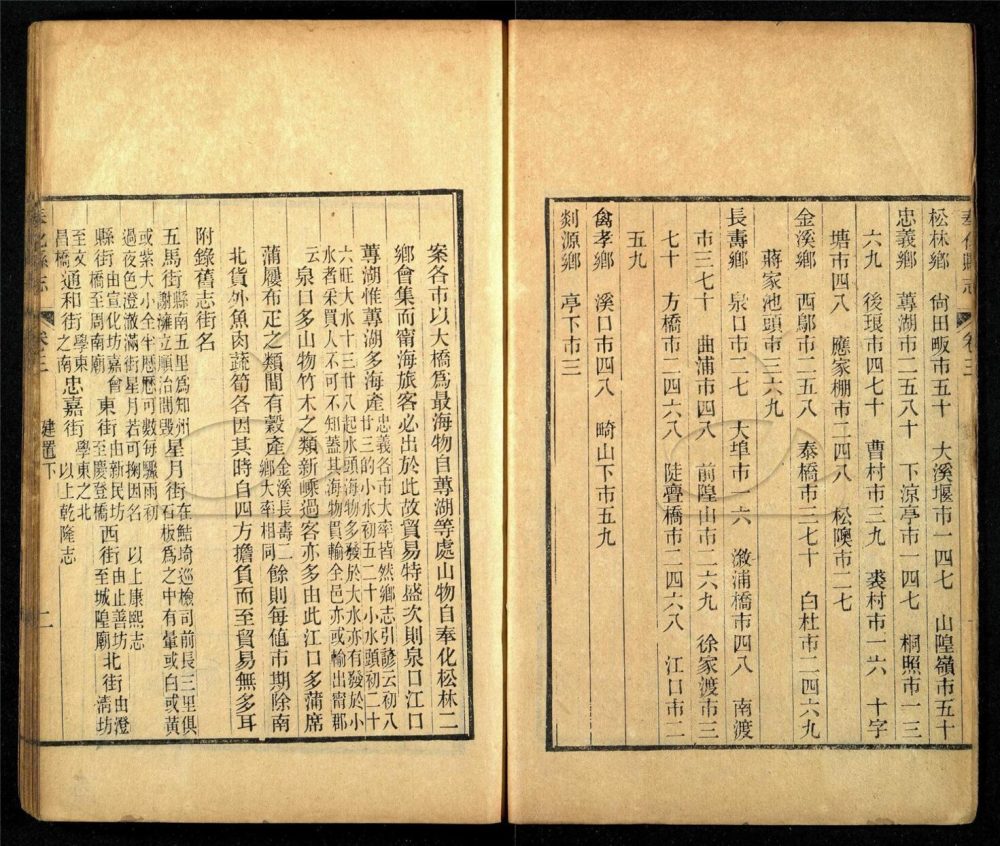 奉化縣志 卷三
松林鄉 尙田畈市五十 大溪堰市一四七 山隍嶺市五十
忠義鄉 蓴湖市二五八十 下涼亭市一四七 桐照市一三
六九 後琅市四七十 曹村市三九 裘村市一六 十字
塘市四八 應家棚市二四八 松隩市二七
金溪鄉 西鄔市二五八 泰橋市三七十 白杜市二四六九
蔣家池頭市三六九
長壽鄉 泉口市二七 大埠市一六 漵浦橋市四八 南渡
市三七十 曲浦市四八 前隍山市二六九 徐家渡市三
七十 方橋市二四六八 陡亹橋市二四六八 江口市一
五九
禽孝鄉 溪口市四八 畸山下市五九
剡源鄉 亭下市三
案各市以大橋爲最海物自蓴湖等處山物自奉化松林二
鄉會集而甯海旅客必出於此故貿易特盛次則泉口江口
蓴湖惟蓴湖多海產忠義各市大率皆然鄉志引諺云初八
廿三的小水初五二十小水頭初二十
六旺大水十三廿八起水頭海物多發於大水亦有發於小
水者采買人不可不知蓋其海物貫輸全邑亦或輸出甯郡
云泉口多山物竹木之類新嵊過客亦多由此江口多蒲席
蒲屨布疋之類間有穀產金溪長壽二
鄉大率相同餘則每値市期除南
北貨外魚肉蔬筍各因其時自四方擔負而至貿易無多耳
附錄舊志街名
五馬街縣南五里爲知州
謝濰立順治間毁星月街在鮚埼巡檢司前長三里俱
石板爲之中有暈或白或黃
或紫大小全半歷歷可數每驟雨初
過夜色澄澈滿街星月若可掬因名 以上康熙志
縣街由宣化坊嘉會
橋至周南廟東街由新民坊
至慶登橋西街由止善坊
至城隍廟北街由澄
淸坊
至文
昌橋學東
通和街之南忠嘉街學東之北 以上乾隆志
奉化縣志 卷三 建置下 二